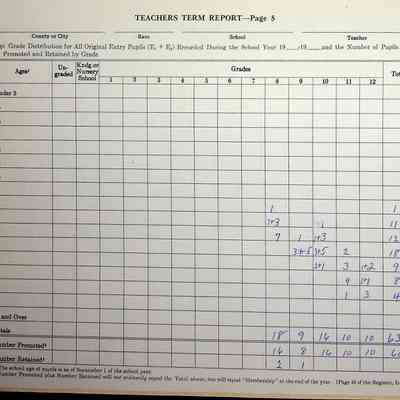 TEACHERS TERM REPORT—Page 5
County or City Race School Teacher
Grade Distribution for All Original Entry Pupils (E₁ + E₂) Recorded During the School Year 19 19 and the Number of Pupils
Promoted and Retained by Grade
Ages¹ Un-graded Kndg. or Nursery School Grades
1 2 3 4 5 6 7 8 9 10 11 12
1
1+3 1 11
7 1 1+3 12
3+5 1+5 2 18
1+1 3 1+2 9
4 1+1 8
1 3 4
and Over
18 9 16 10 10 63
Promoted² 16 8 16 10 10
Retained² 2 1
The school age of pupils is as of September 1 of the school year.
Number Promoted plus Number Retained will not ordinarily equal the Total above, but will equal "Membership" at the end of the year.